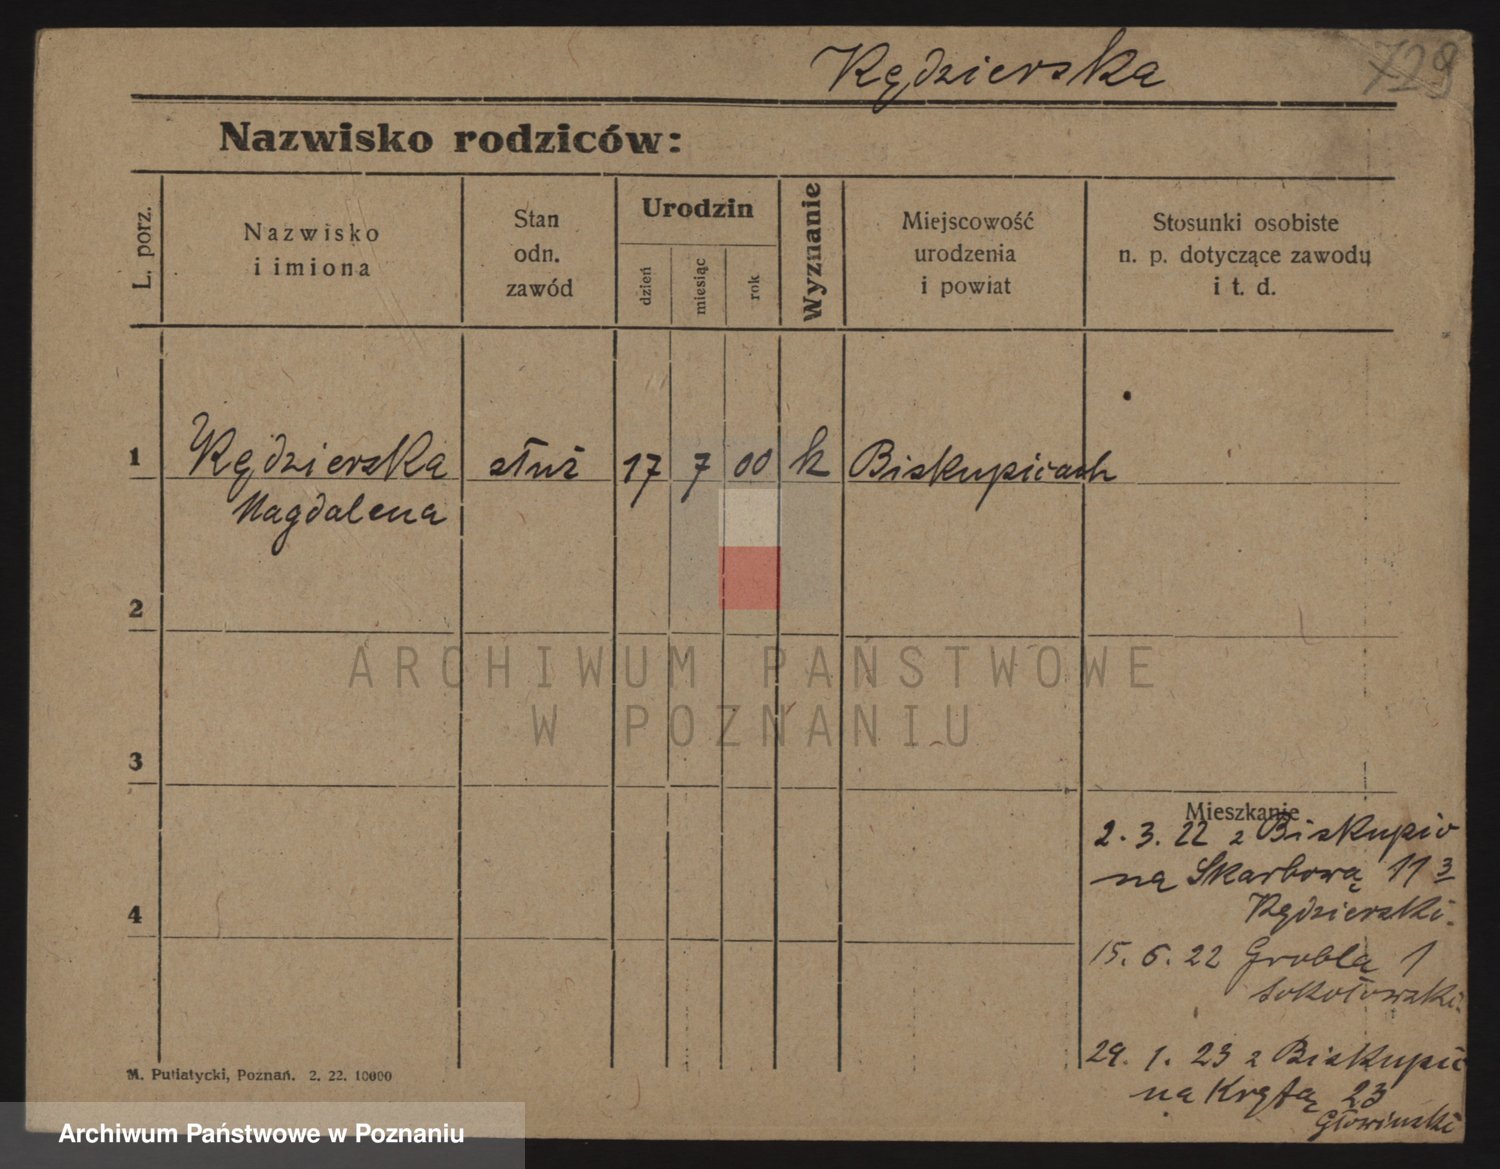 Kędzierska
729
Nazwisko rodziców:
L. porz.
Nazwisko
i imiona
Stan
odn.
zawód
Urodzin
dzień
miesiąc
rok
Wyznanie
Miejscowość
urodzenia
i powiat
Stosunki osobiste
n. p. dotyczące zawodu
i t. d.
1
Kędzierska służ 17 7 00 k Biskupicach
Magdalena
2
3
4
Mieszkanie
2. 3. 22 z Biskupic
na Skarbową 11 3
Kędzierski.
15. 6. 22 Grobla 1
Sokołowski.
29. 1. 23 z Biskupic
na Krętą 23
Głowinski
M. Putiatycki, Poznań. 2. 22. 10000
ARCHIWUM PAŃSTWOWE
W POZNANIU
Archiwum Państwowe w Poznaniu